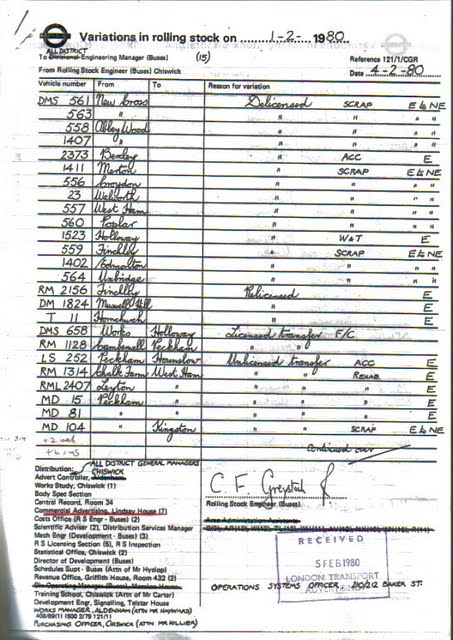 Variations in rolling stock on 1-2- 1980
ALL DISTRICT
To Divisional Engineering Manager (Buses) (15) Reference 121/1/CGR
From Rolling Stock Engineer (Buses) Chiswick Date 4-2-80
Vehicle number From To Reason for variation
DMS 561 New Cross Delicensed SCRAP E & NE
563 " " " " "
558 Abbey Wood " " " "
1407 " " " " "
2373 Bexley " ACC E
1411 Merton " SCRAP E & NE
556 Croydon " " " "
23 Walworth " " " "
557 West Ham " " " "
560 Poplar " " " "
1523 Holloway " W&T E
559 Finchley " SCRAP E & NE
1402 Edmonton " " " "
564 Uxbridge " " " "
RM 2156 Finchley Relicensed E
DM 1824 Muswell Hill " E
T 11 Hornchurch " E
DMS 658 Works Holloway Licensed transfer F/C
RM 1128 Camberwell Peckham " " "
LS 252 Peckham Hounslow Unlicensed transfer ACC E
RM 1314 Chalk Farm West Ham " " REHAB. E
RML 2407 Leyton " " " " E
MD 15 Peckham " " " " E
MD 81 " " " " " E
MD 104 " Kingston " " SCRAP E & NE
Continued over
Distribution: ALL DISTRICT GENERAL MANAGERS
CHISWICK
Advert Controller, Aldenham
Works Study, Chiswick (1)
Body Spec Section
Central Record, Room 34
Commercial Advertising, Lindsey House (7)
Costs Office (R S Engr - Buses) (2)
Scientific Adviser (2), Distribution Services Manager
Mech Engr (Development - Buses) (3)
R S Licensing Section (5), R S Inspection
Statistical Office, Chiswick (2)
Director of Development (Buses)
Schedules Supt - Buses (Attn of Mr Hyslop)
Revenue Office, Griffith House, Room 432 (2)
Training School, Chiswick (Attn of Mr Carter)
Development Engr, Signalling, Telstar House
WORKS MANAGER, ALDENHAM (ATTN MR HAYWARD)
PURCHASING OFFICER, CHISWICK (ATTN MR HILLIER)
C F Greystock
Rolling Stock Engineer (Buses)
Area Administration Assistants
RECEIVED
5 FEB 1980
LONDON TRANSPORT
ADVERTISING
OPERATIONS SYSTEMS OFFICER, 210/212 BAKER ST.